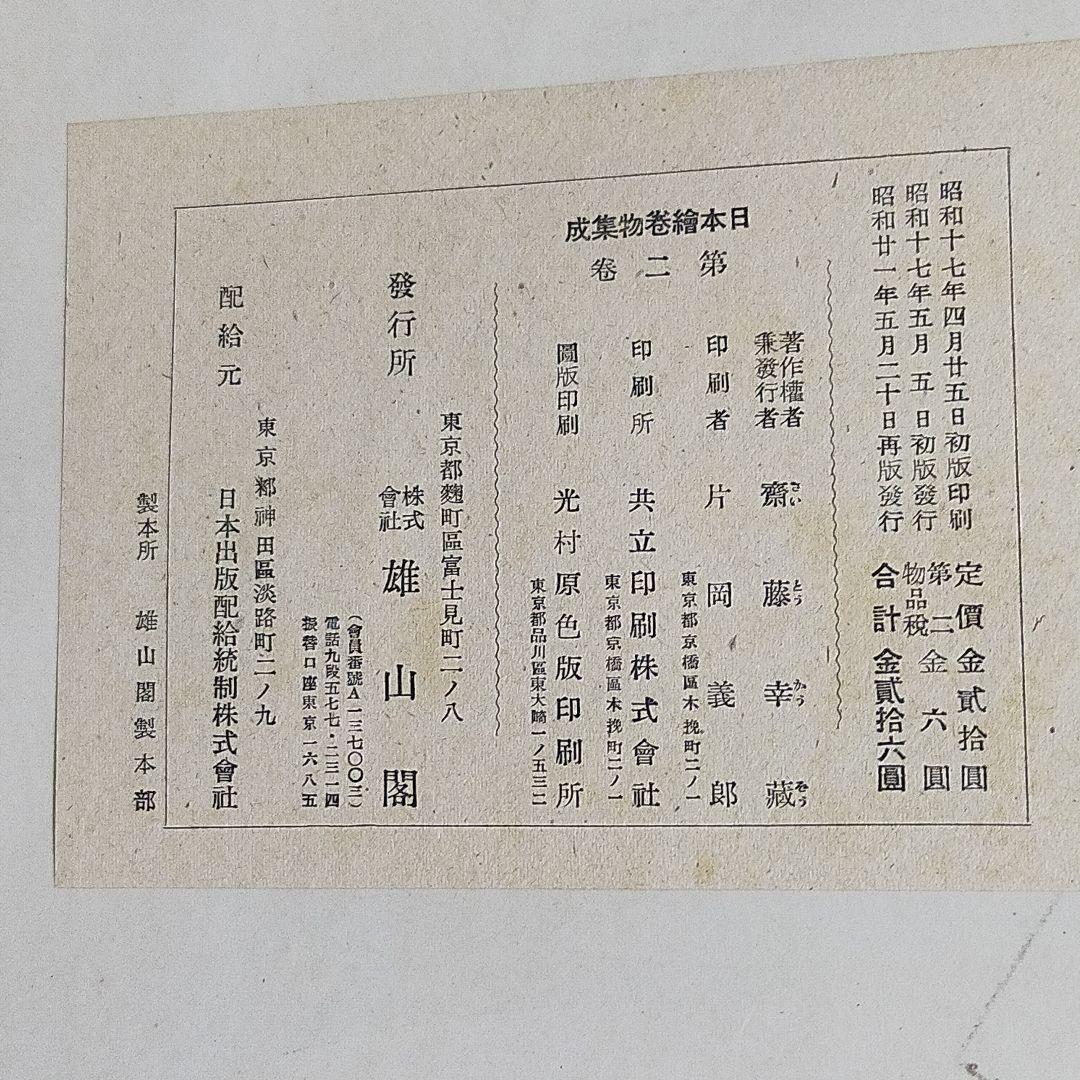 昭和十七年四月廿五日初版印刷
昭和十七年五月五日初版發行
昭和廿一年五月二十日再版發行
定價金貳拾圓
第二物品稅金六圓
合計金貳拾六圓
日本繪卷物集成
第二卷
著作權者兼發行者 齋藤幸藏
さいとうかうざう
印刷者 片岡義郎
東京都京橋區木挽町二ノ一
印刷所 共立印刷株式會社
東京都京橋區木挽町二ノ一
圖版印刷 光村原色版印刷所
東京都品川區東大崎一ノ五三二
東京都麴町區富士見町二ノ八
發行所 株式會社 雄山閣
(會員番號A一三七〇〇三)
電話九段五七七・二三一四
振替口座東京一六八五
東京都神田區淡路町二ノ九
配給元 日本出版配給統制株式會社
製本所 雄山閣製本部